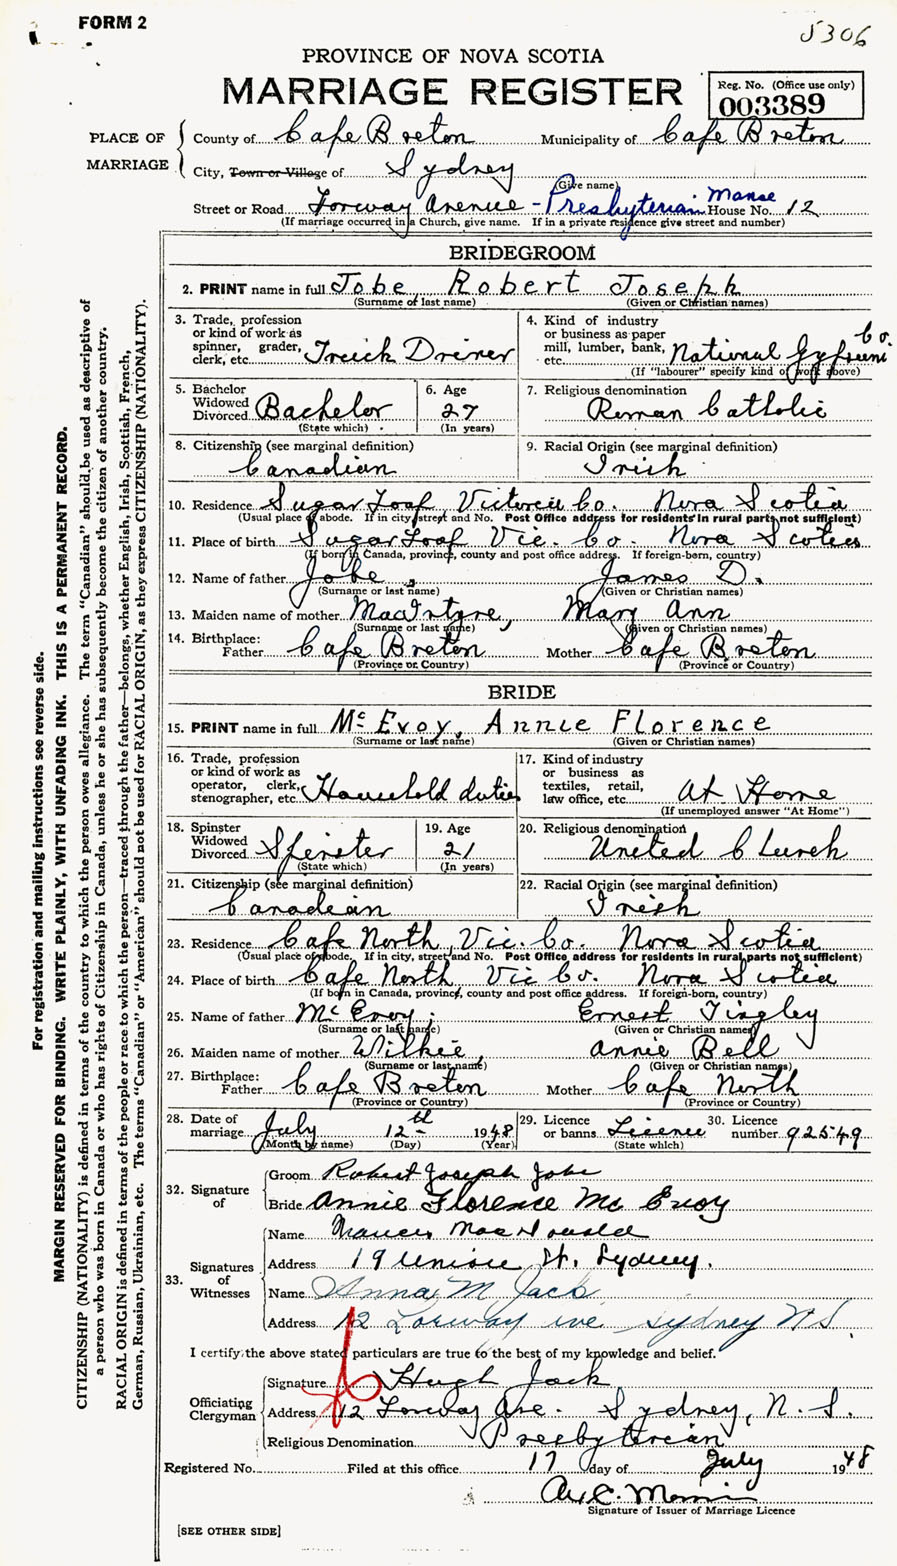 FORM 2
5306
PROVINCE OF NOVA SCOTIA
MARRIAGE REGISTER
Reg. No. (Office use only)
003389
PLACE OF MARRIAGE
County of Cape Breton Municipality of Cape Breton
City, Town or Village of Sydney
(Give name)
Street or Road Lorway Avenue - Presbyterian Manse House No. 12
(If marriage occurred in a Church, give name. If in a private residence give street and number)
BRIDEGROOM
2. PRINT name in full Jobe Robert Joseph
(Surname or last name) (Given or Christian names)
3. Trade, profession or kind of work as spinner, grader, clerk, etc. Truck Driver
4. Kind of industry or business as paper mill, lumber, bank, etc. National Gypsum Co.
(If "labourer" specify kind of work above)
5. Bachelor Widowed Divorced Bachelor
(State which)
6. Age 27
(In years)
7. Religious denomination
Roman Catholic
8. Citizenship (see marginal definition)
Canadian
9. Racial Origin (see marginal definition)
Irish
10. Residence Sugar Loaf, Victoria Co. Nova Scotia
(Usual place of abode. If in city, street and No. Post Office address for residents in rural parts not sufficient)
11. Place of birth Sugar Loaf Vic. Co. Nova Scotia
(If born in Canada, province, county and post office address. If foreign-born, country)
12. Name of father Jobe, James D.
(Surname or last name) (Given or Christian names)
13. Maiden name of mother MacIntyre, Mary Ann
(Surname or last name) (Given or Christian names)
14. Birthplace:
Father Cape Breton Mother Cape Breton
(Province or Country) (Province or Country)
BRIDE
15. PRINT name in full McEvoy, Annie Florence
(Surname or last name) (Given or Christian names)
16. Trade, profession or kind of work as operator, clerk, stenographer, etc. Household duties
17. Kind of industry or business as textiles, retail, law office, etc. At Home
(If unemployed answer "At Home")
18. Spinster Widowed Divorced Spinster
(State which)
19. Age 21
(In years)
20. Religious denomination
United Church
21. Citizenship (see marginal definition)
Canadian
22. Racial Origin (see marginal definition)
Irish
23. Residence Cape North, Vic. Co. Nova Scotia
(Usual place of abode. If in city, street and No. Post Office address for residents in rural parts not sufficient)
24. Place of birth Cape North Vic Co. Nova Scotia
(If born in Canada, province, county and post office address. If foreign-born, country)
25. Name of father McEvoy, Ernest Tingley
(Surname or last name) (Given or Christian names)
26. Maiden name of mother Wilkie, Annie Bell
(Surname or last name) (Given or Christian names)
27. Birthplace:
Father Cape Breton Mother Cape North
(Province or Country) (Province or Country)
28. Date of marriage July 12th 1948
(Month by name) (Day) (Year)
29. Licence or banns Licence
(State which)
30. Licence number 92549
32. Signature of
Groom Robert Joseph Jobe
Bride Annie Florence McEvoy
33. Signatures of Witnesses
Name MacDonald
Address 19 Union St. Sydney.
Name Anna M Jack
Address 12 Lorway ave Sydney N S.
I certify the above stated particulars are true to the best of my knowledge and belief.
Officiating Clergyman
Signature Hugh Jack
Address 12 Lorway Ave. Sydney, N. S.
Religious Denomination Presbyterian
Registered No. Filed at this office 17 day of July 1948
Signature of Issuer of Marriage Licence
[SEE OTHER SIDE]
For registration and mailing instructions see reverse side.
MARGIN RESERVED FOR BINDING. WRITE PLAINLY, WITH UNFADING INK. THIS IS A PERMANENT RECORD.
CITIZENSHIP (NATIONALITY) is defined in terms of the country to which the person owes allegiance. The term "Canadian" should be used as descriptive of
a person who was born in Canada or who has rights of Citizenship in Canada, unless he or she has subsequently become the citizen of another country.
RACIAL ORIGIN is defined in terms of the people or race to which the person—traced through the father—belongs, whether English, Irish, Scottish, French,
German, Russian, Ukrainian, etc. The terms "Canadian" or "American" should not be used for RACIAL ORIGIN, as they express CITIZENSHIP (NATIONALITY).